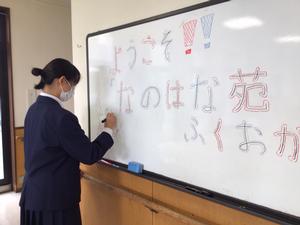 ようこそ!!
なのはな苑
ふくおか